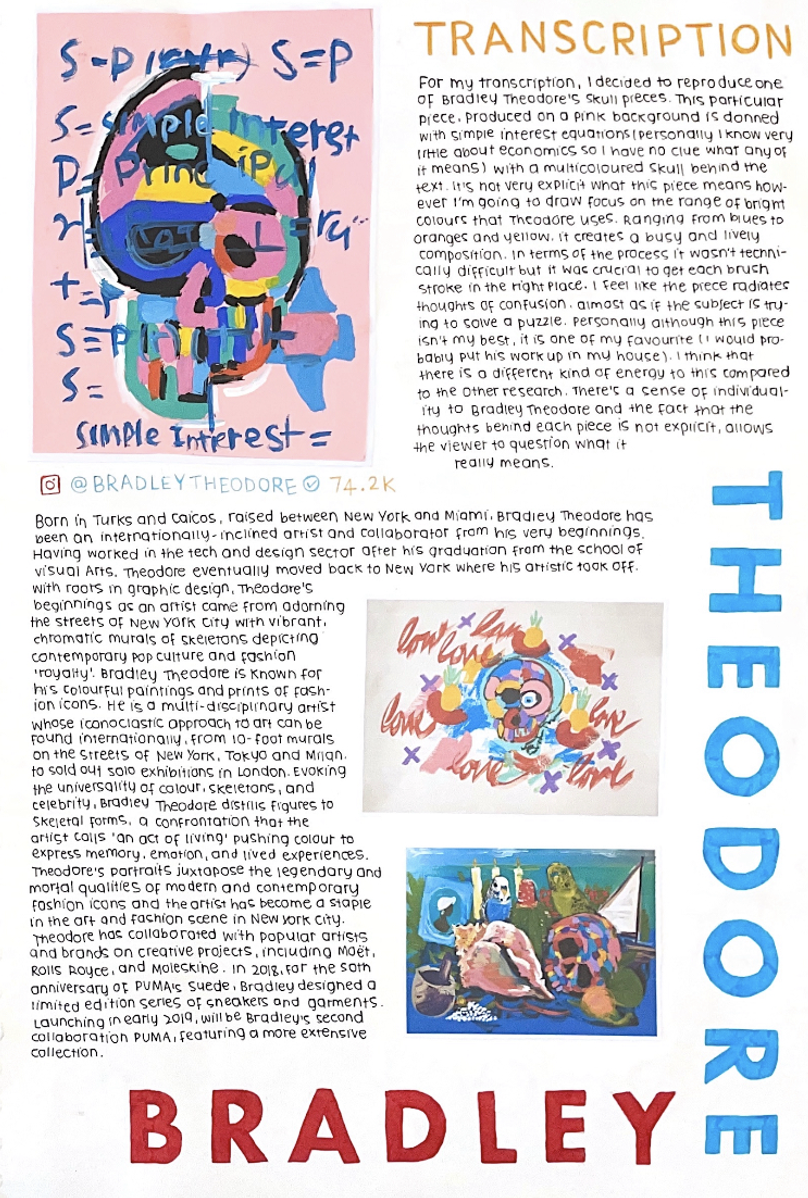 TRANSCRIPTION
S-P S=P
S=Simple Interest
P= Principal
t=
S=P
S=
Simple Interest =
For my transcription, I decided to reproduce one
of Bradley Theodore's skull pieces. This particular
piece, produced on a pink background is donned
with simple interest equations (personally I know very
little about economics so I have no clue what any of
it means) with a multicoloured skull behind the
text. It's not very explicit what this piece means how-
ever I'm going to draw focus on the range of bright
colours that Theodore uses. Ranging from blues to
oranges and yellow. it creates a busy and lively
composition. In terms of the process it wasn't techni-
cally difficult but it was crucial to get each brush
stroke in the right place. I feel like the piece radiates
thoughts of confusion. almost as if the subject is try-
ing to solve a puzzle. Personally although this piece
isn't my best, it is one of my favourite (I would pro-
bably put his work up in my house). I think that
there is a different kind of energy to this compared
to the other research. There's a sense of individual-
ity to Bradley Theodore and the fact that the
thoughts behind each piece is not explicit, allows
the viewer to question what it
really means.
@BRADLEYTHEODORE 74.2K
Born in Turks and Caicos, raised between New York and Miami, Bradley Theodore has
been an internationally-inclined artist and collaborator from his very beginnings.
Having worked in the tech and design sector after his graduation from the school of
visual Arts, Theodore eventually moved back to New York where his artistic took off.
with roots in graphic design, Theodore's
beginnings as an artist came from adorning
the streets of New York City with vibrant,
chromatic murals of skeletons depicting
contemporary pop culture and fashion
'royalty'. Bradley Theodore is known for
his colourful paintings and prints of fash-
ion icons. He is a multi-disciplinary artist
whose iconoclastic approach to art can be
found internationally, from 10-foot murals
on the streets of New York, Tokyo and Milan,
to sold out solo exhibitions in London. Evoking
the universality of colour, skeletons, and
celebrity, Bradley Theodore distills figures to
skeletal forms, a confrontation that the
artist calls 'an act of living' pushing colour to
express memory, emotion, and lived experiences.
Theodore's portraits juxtapose the legendary and
mortal qualities of modern and contemporary
fashion icons and the artist has become a staple
in the art and fashion scene in New York City.
Theodore has collaborated with popular artists
and brands on creative projects, including Moët,
Rolls Royce, and Moleskine. In 2018, for the 50th
anniversary of PUMA's Suede, Bradley designed a
limited edition series of sneakers and garments.
Launching in early 2019, will be Bradley's second
collaboration PUMA, featuring a more extensive
collection.
love love
love
love love
love love
THEODORE
BRADLEY